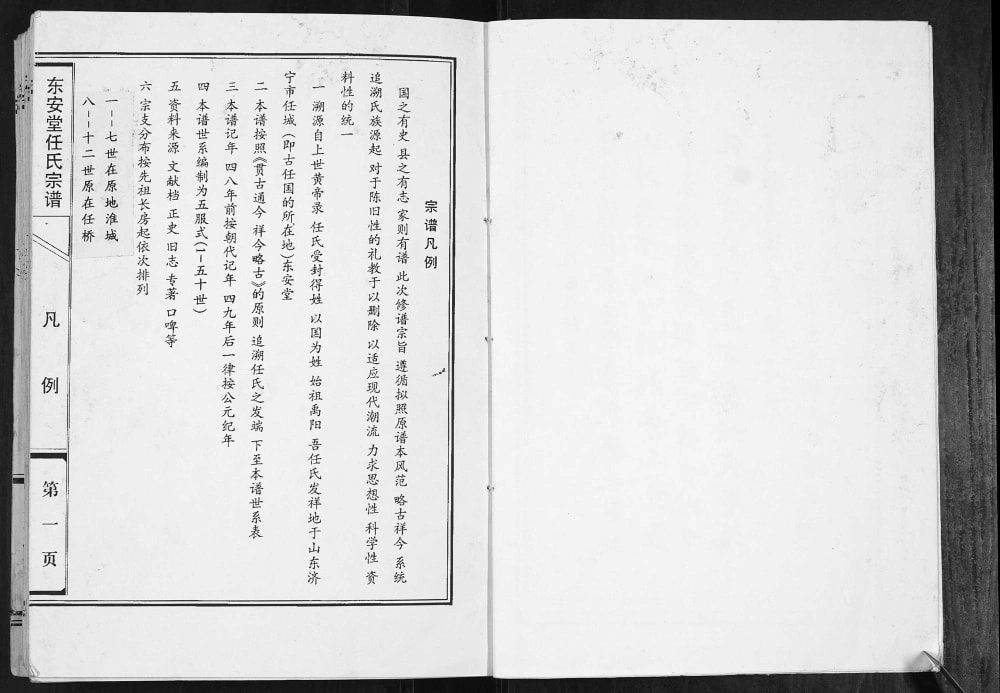 宗谱凡例
国之有史 县之有志 家则有谱 此次修谱宗旨 遵循拟照原谱本风范 略古祥今 系统
追溯氏族源起 对于陈旧性的礼教于以删除 以适应现代潮流 力求思想性 科学性 资
料性的统一
一 溯源自上世黄帝录 任氏受封得姓 以国为姓 始祖禹阳 吾任氏发祥地于山东济
宁市任城（即古任国的所在地）东安堂
二 本谱按照《贯古通今 祥今略古》的原则 追溯任氏之发端 下至本谱世系表
三 本谱记年 四八年前按朝代记年 四九年后一律按公元纪年
四 本谱世系编制为五服式（1-五十世）
五 资料来源 文献档 正史 旧志 专著 口啤等
六 宗支分布按先祖长房起依次排列
一--七世在原地淮城
八--十二世原在任桥
东安堂任氏宗谱
凡例
第一页